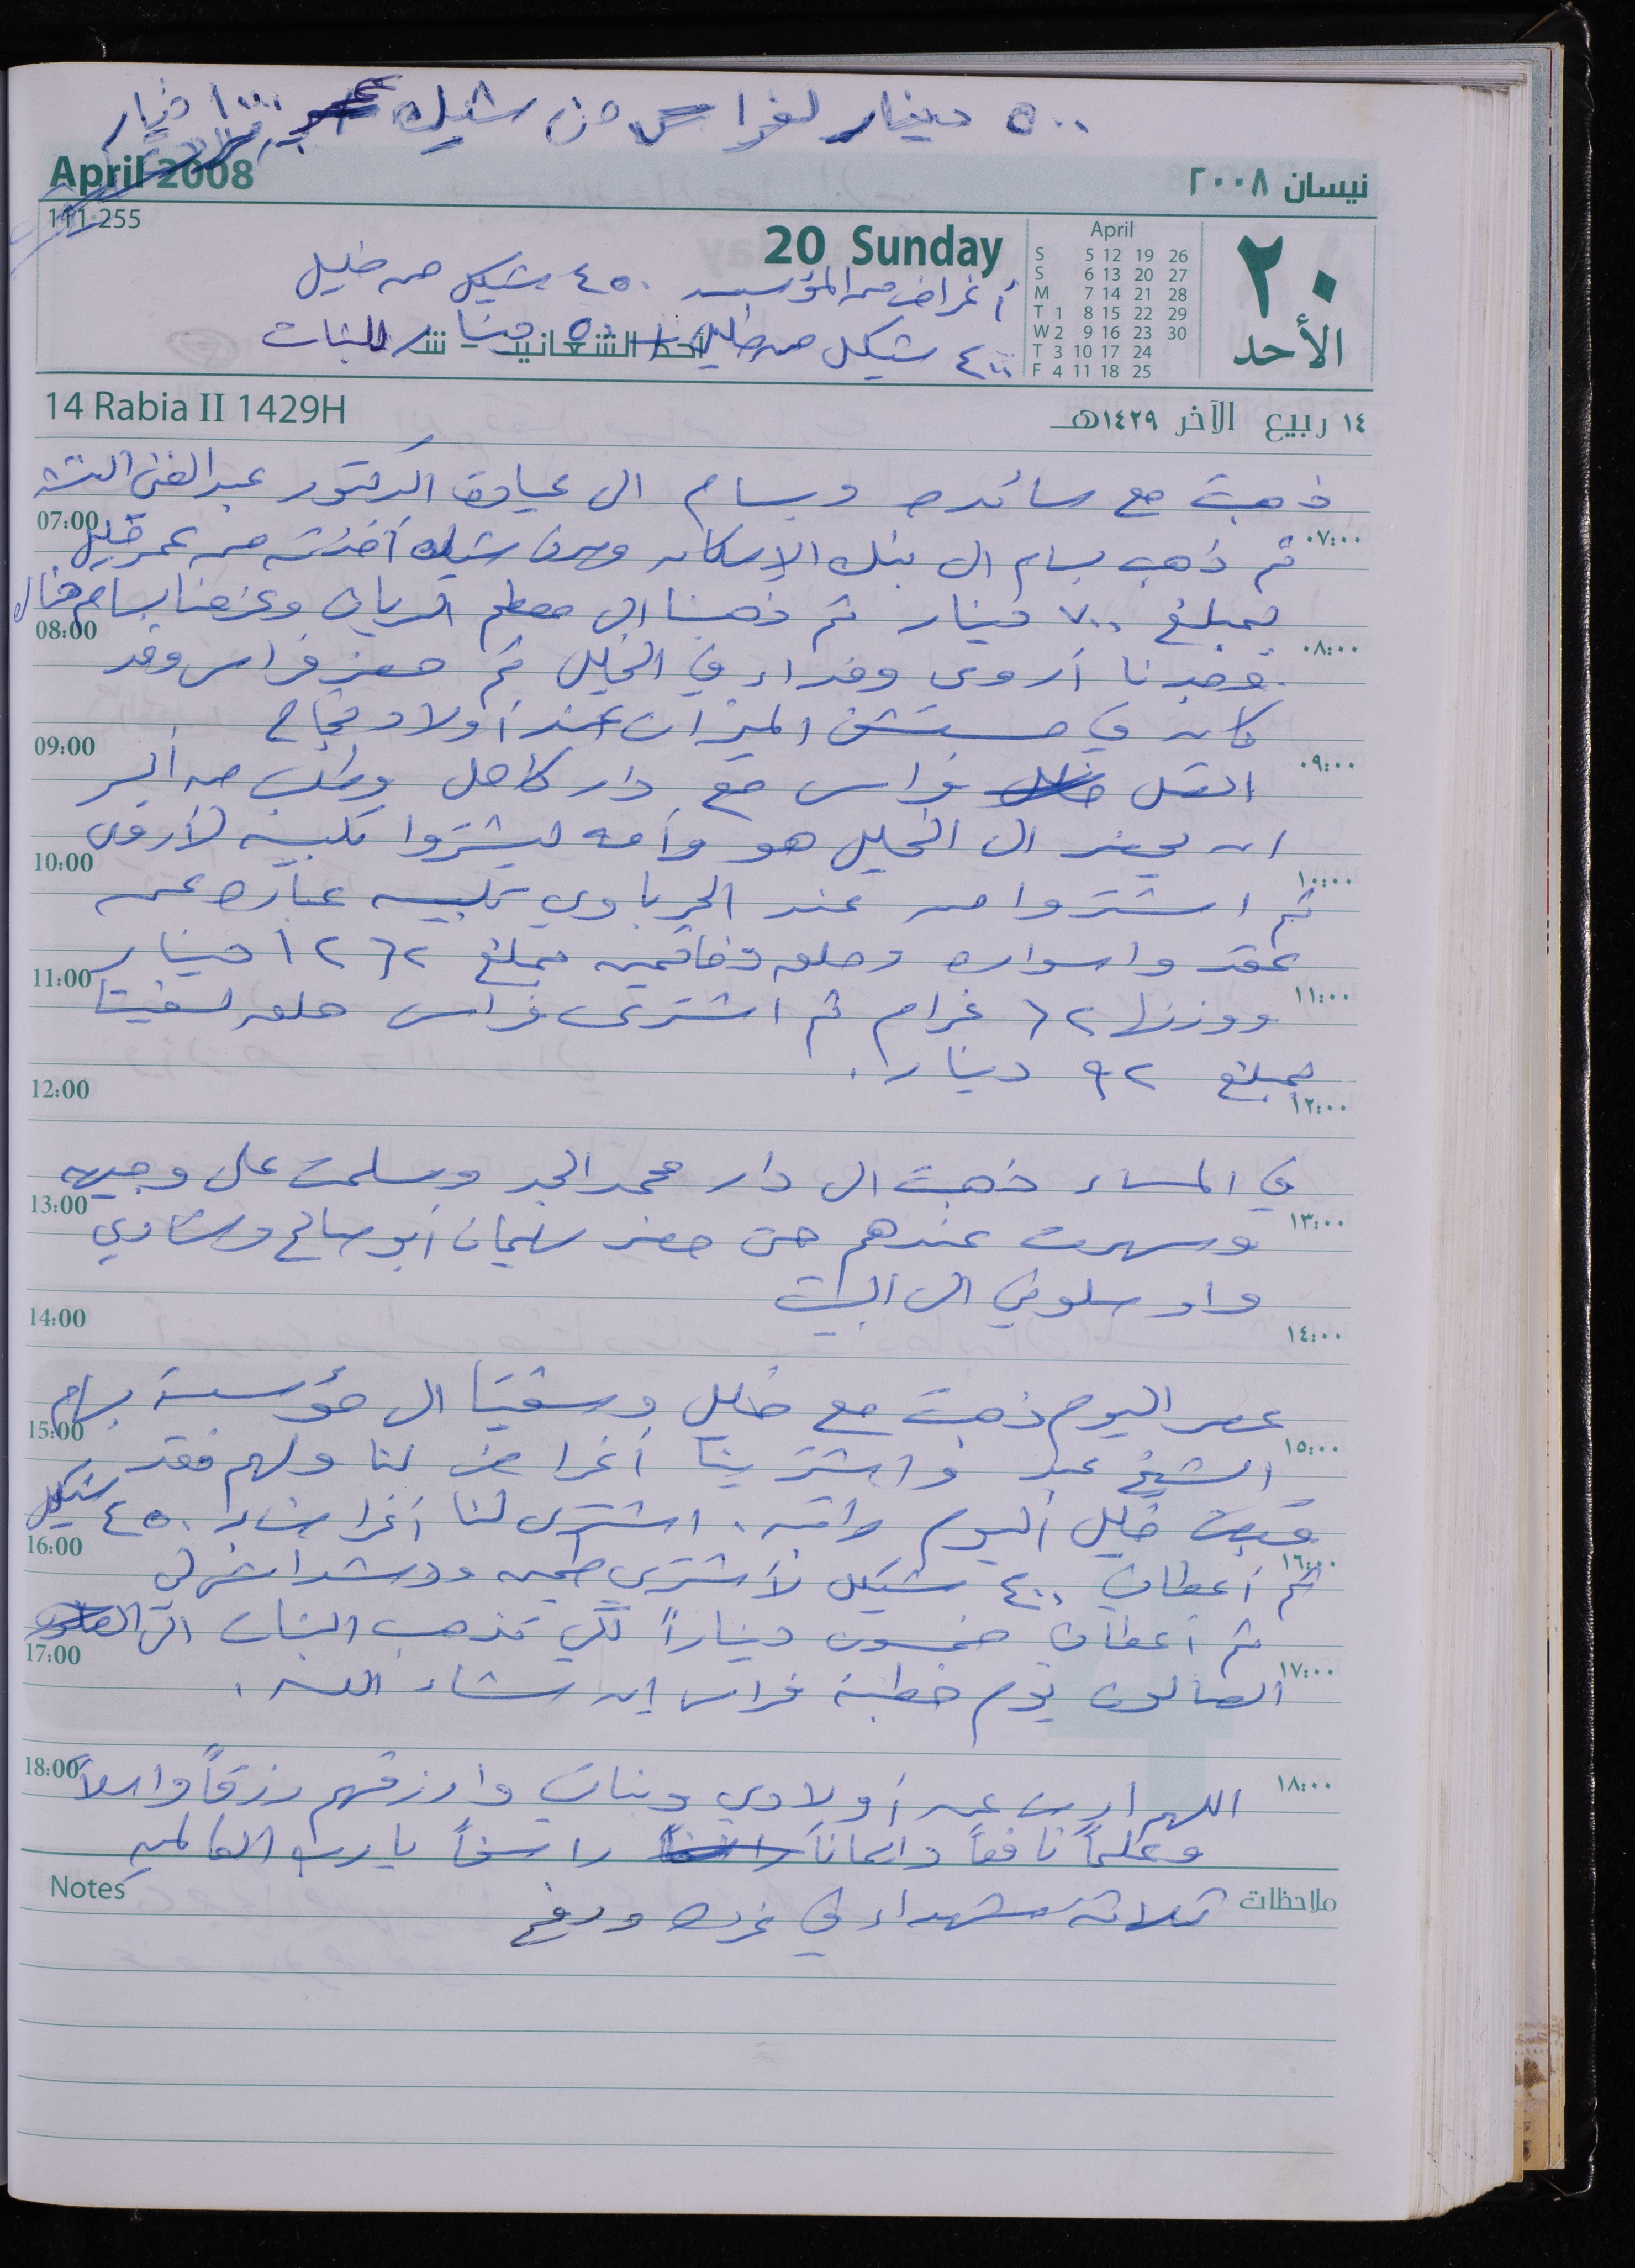 ٥٠٠ دينار لفراس من شيك ١٠٠٠ دينار
April 2008
نيسان ٢٠٠٨
111-255
20 Sunday
April
S 5 12 19 26
S 6 13 20 27
M 7 14 21 28
T 1 8 15 22 29
W 2 9 16 23 30
T 3 10 17 24
F 4 11 18 25
٢٠
الأحد
أغراض من المؤسسة ٤٥٠ شيكل من خليل
٤٠٠ شيكل من خليل + ٥٠ دينار للبنات
أحد الشعانين - ش
14 Rabia II 1429H
١٤ ربيع الآخر ١٤٢٩هـ
ذهبت مع سائده وبسام الى عيادة الدكتور عبد الغني النتشه
07:00
٠٧:٠٠
ثم ذهب بسام الى بنك الإسكان وصرف شيك أخذته من عمر خليل
بمبلغ ٧٠٠ دينار ثم ذهبنا الى مطعم الريان وعزمنا بسام هناك
08:00
٠٨:٠٠
وجدنا أروى وفداء في الخليل ثم حضر فراس وقد
كان في مستشفى الميزان عند أولاد حجاج
09:00
٠٩:٠٠
اتصل فراس مع دار كامل وطلب من أيسر
ان يحضر الى الخليل هو وأمه ليشتروا تلبيسة لأروى
10:00
١٠:٠٠
ثم اشتروا من عند الحرباوي تلبيسه عباره عن
عقد واسواره وحلق وخاتمين بمبلغ ١٢٦٢ دينار
11:00
١١:٠٠
ووزنها ٦٢ غرام ثم اشترى فراس حلق لسفيتا
بمبلغ ٩٢ دينار.
12:00
١٢:٠٠
في المساء ذهبت الى دار محمد الجد وسلمت على وجيه
13:00
١٣:٠٠
وسهرت عندهم حتى حضر سليمان أبو صالح وشادي
واوصلوني الى البيت
14:00
١٤:٠٠
عصر اليوم ذهبت مع خليل وسفيتا الى مؤسسة بسام
15:00
١٥:٠٠
الشيخ عيد واشترينا أغراض لنا ولهم فقد
قبض خليل اليوم راتبه. اشترى لنا أغراض بـ ٤٥٠ شيكل
16:00
١٦:٠٠
ثم أعطاني ٤٠٠ شيكل لأشتري طحين ودشداش لي
ثم أعطاني خمسون ديناراً لكي تذهب البنات الى
17:00
١٧:٠٠
الصالون يوم خطبة فراس إن شاء الله.
18:00
١٨:٠٠
اللهم ارض عن أولادي وبناتي وارزقهم رزقاً واسعاً
وعلماً نافعاً وايماناً راسخاً يا رب العالمين
Notes
ملاحظات
ثلاثة شهداء في غزه ورفح